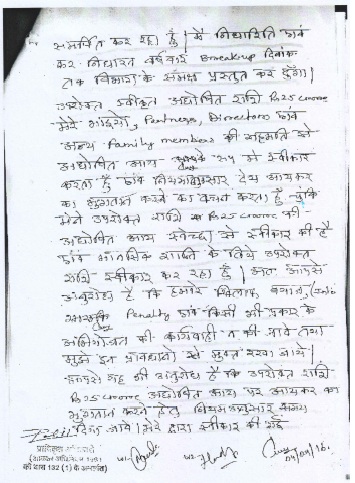 समर्पित कर रहा हूँ। मैं निर्धारित एवं
कर निर्धारण वर्षवार Breakup दिनांक
तक विभाग के समक्ष प्रस्तुत कर दूँगा।
उपरोक्त स्वीकृत अघोषित राशि Rs 25 crore
मेरे भाईयों, Partners, Directors एवं
अन्य Family members की सहमति से
अघोषित आय के रूप में स्वीकार
करता हूँ एवं नियमानुसार देय आयकर
का भुगतान करने का वचन करता हूँ चूंकि
मैंने उपरोक्त राशि Rs 25 crore की
अघोषित आय स्वेच्छा से स्वीकार की है
एवं मानसिक शान्ति के लिये उपरोक्त
राशि स्वीकार कर रहा हूँ। अतः आपसे
अनुरोध है कि हमारे खिलाफ ब्याज,
Penalty एवं किसी भी प्रकार के
अभियोजन की कार्यवाही न की जावे तथा
मुझे इन प्रावधानों से मुक्त रखा जाये।
आपसे यह भी अनुरोध है कि उपरोक्त राशि
Rs 25 crore अघोषित आय पर आयकर का
भुगतान करने हेतु नियमानुसार समय
दिया जावे। मेरे द्वारा स्वीकार की गई
प्राधिकृत अधिकारी
(आयकर अधिनियम 1961
की धारा 132 (1) के अन्तर्गत)